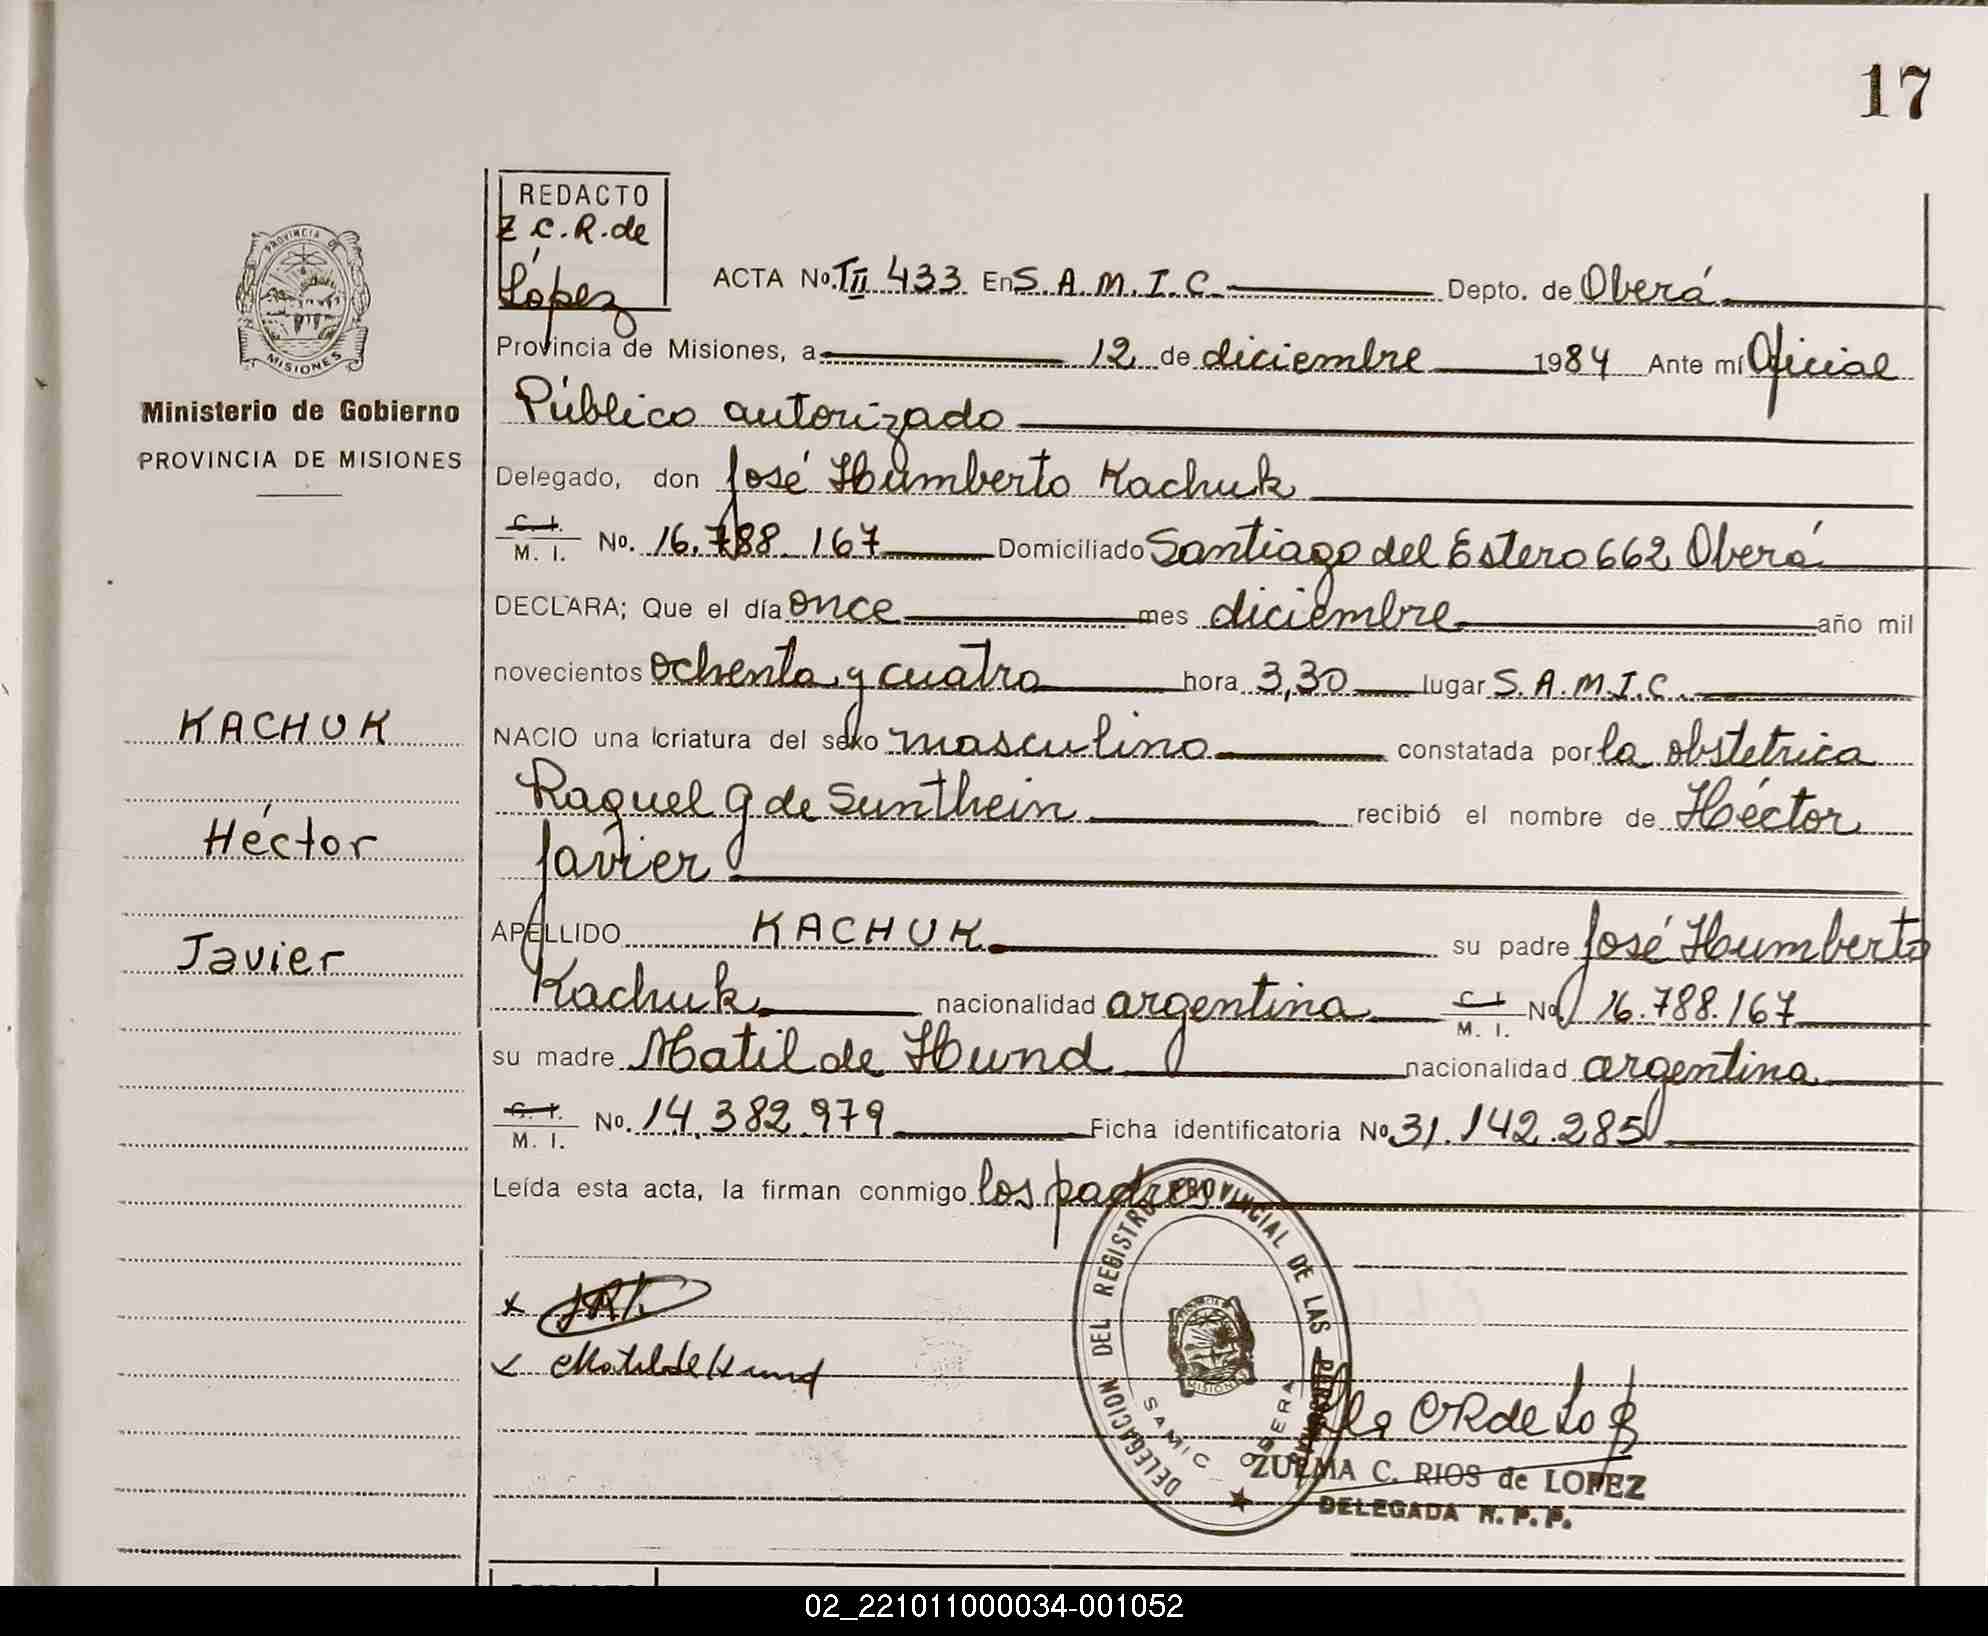 17
REDACTO
Z C. R. de
López
PROVINCIA DE
MISIONES
Ministerio de Gobierno
PROVINCIA DE MISIONES
KACHUK
Héctor
Javier
ACTA No. TII 433 En S. A. M. I. C. Depto. de Oberá
Provincia de Misiones, a 12 de diciembre 1984 Ante mí Oficial
Público autorizado
Delegado, don José Humberto Kachuk
C. I.
M. I. No. 16.788.167 Domiciliado Santiago del Estero 662 Oberá
DECLARA; Que el día once mes diciembre año mil
novecientos ochenta y cuatro hora 3,30 lugar S. A. M. I. C.
NACIO una criatura del sexo masculino constatada por la obstetrica
Raquel G de Sunthein recibió el nombre de Héctor
Javier
APELLIDO KACHUK su padre José Humberto
Kachuk nacionalidad argentina C. I.
M. I. No 16.788.167
su madre Matilde Hund nacionalidad argentina
C. I.
M. I. No. 14.382.979 Ficha identificatoria No 31.142.285
Leída esta acta, la firman conmigo los padres
x
x Matilde Hund
DELEGACION DEL REGISTRO PROVINCIAL DE LAS PERSONAS
SAMIC - OBERA
MISIONES
CR de Lo
ZULMA C. RIOS de LOPEZ
DELEGADA R. P. P.
02_221011000034-001052